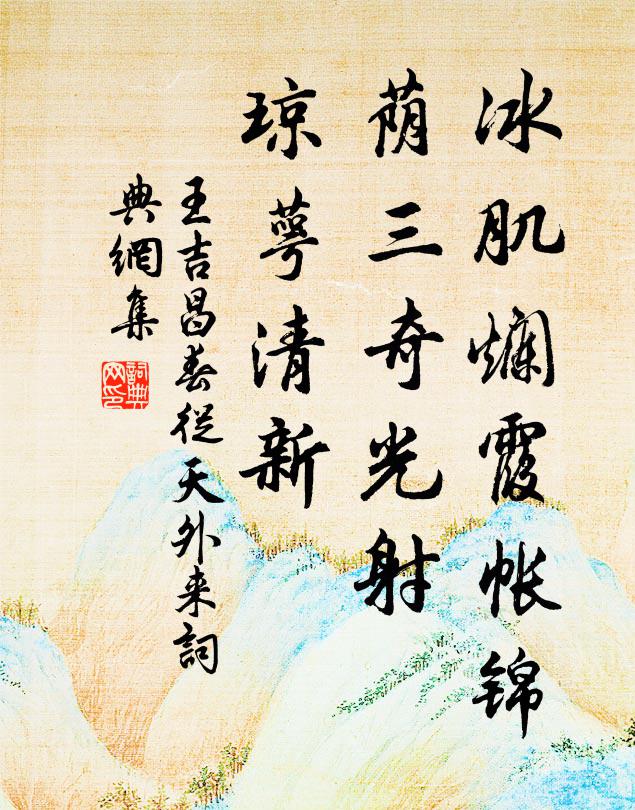 冰肌爛霞帐锦
荫三奇光射
琼萼清新
王吉昌春從天外来詞
典網集
詞典網印